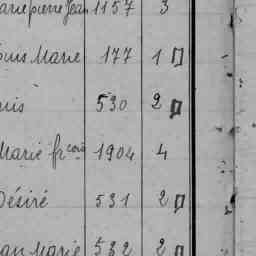 arie pierre Jean 1157 3
ouis Marie 177 1
uis 530 2
Marie frcois 1904 4
Désiré 531 2
ean Marie 532 2